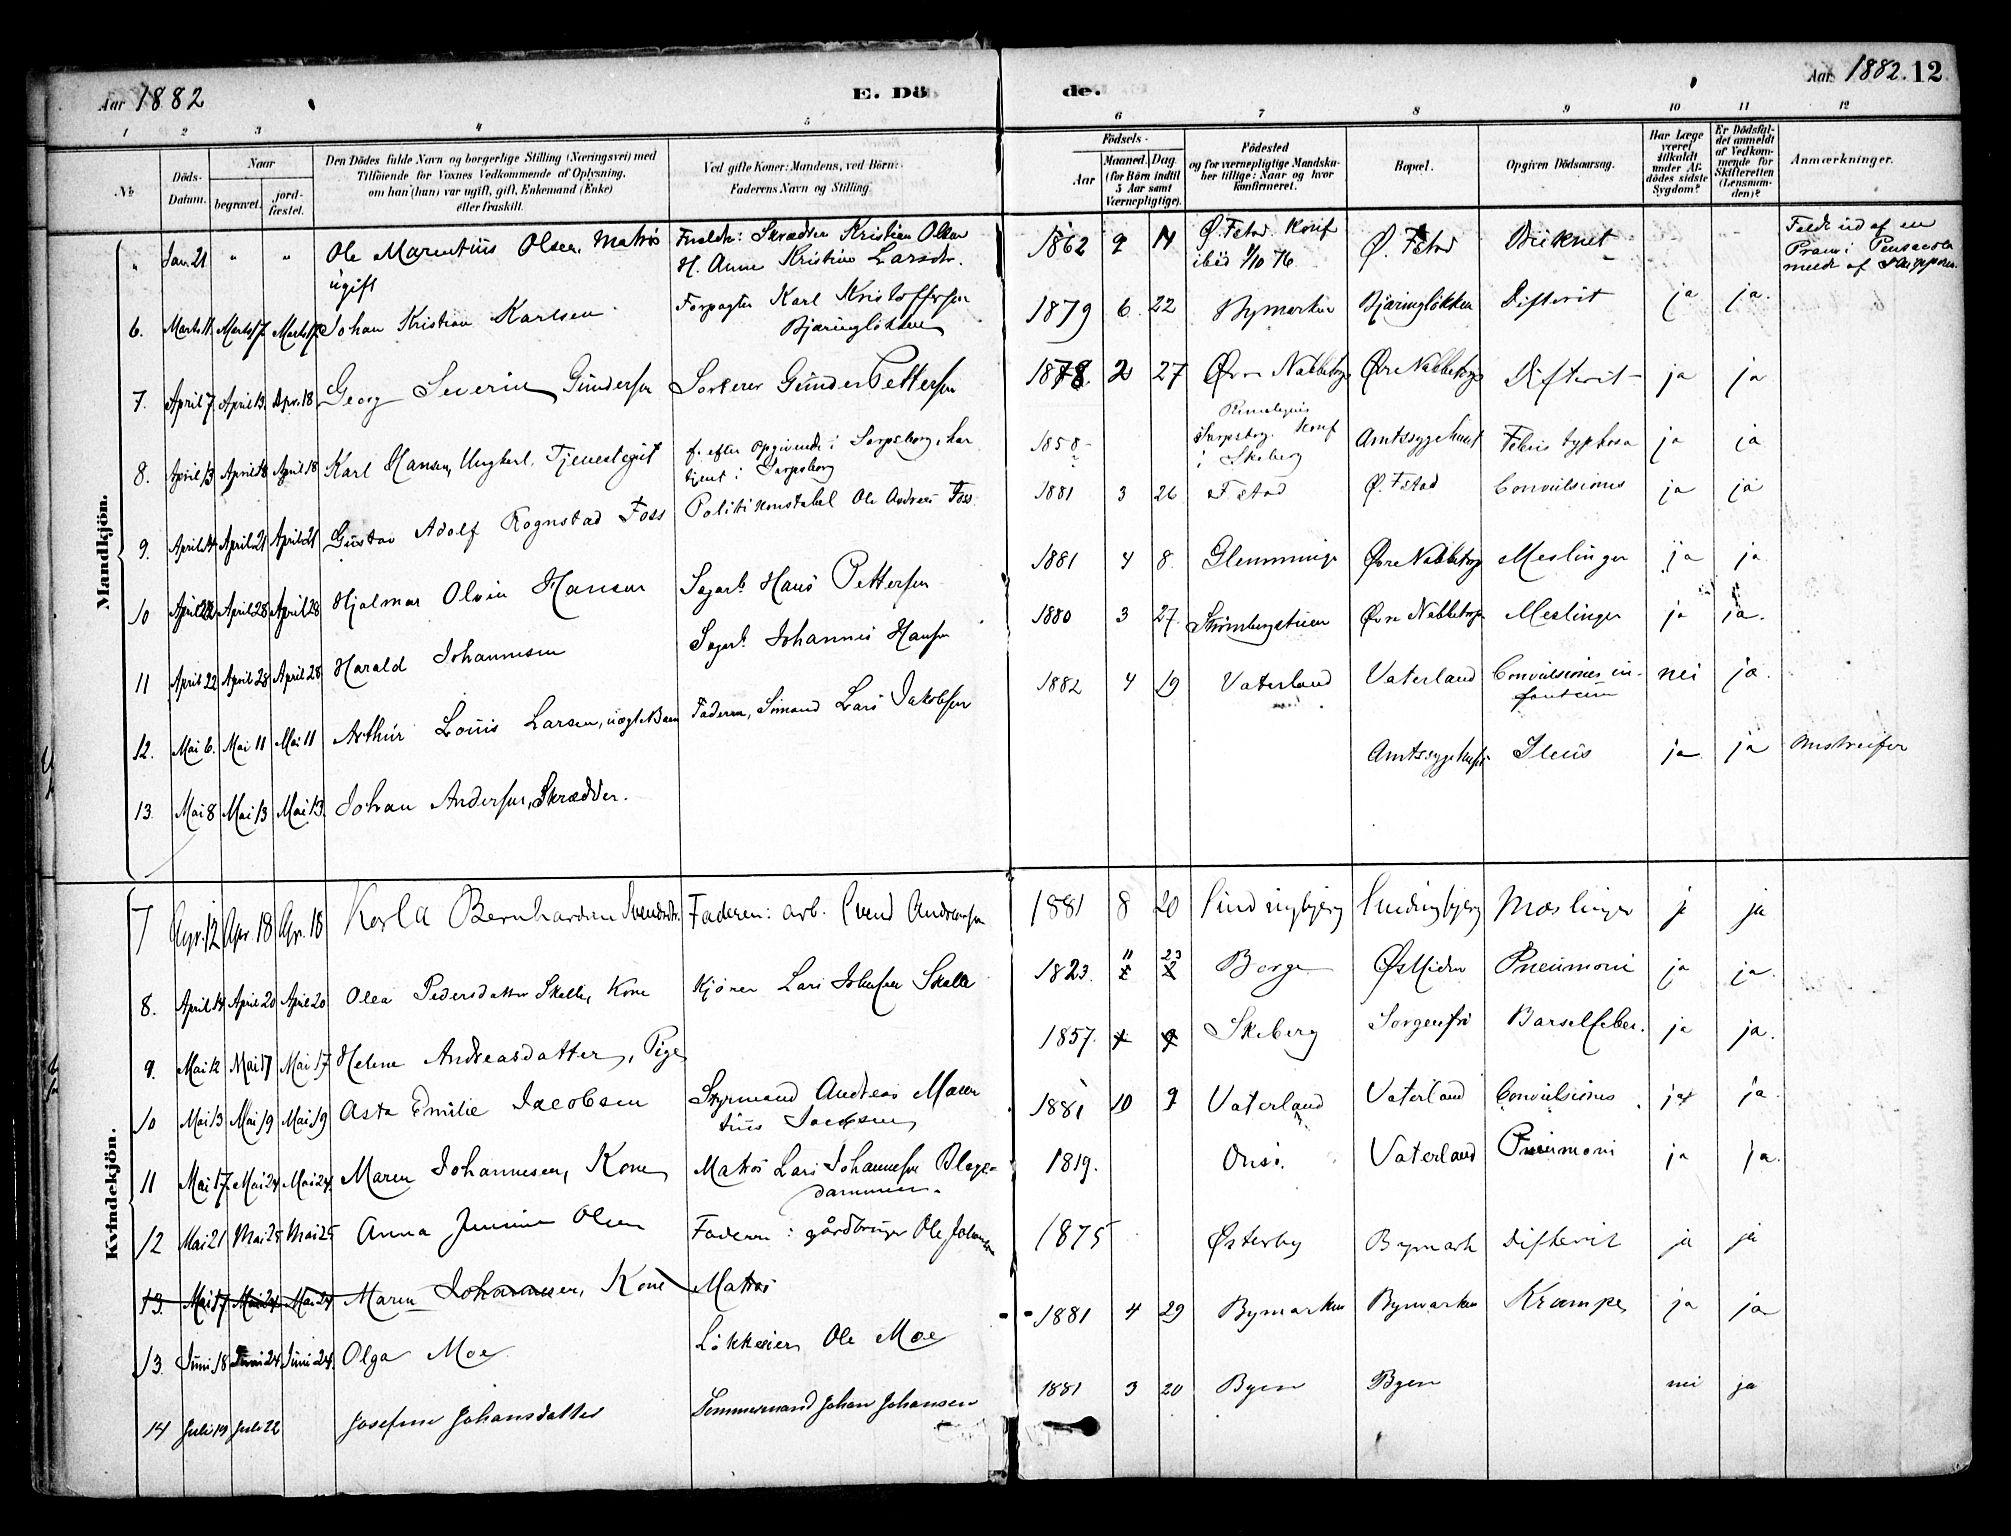 Aar 1882
E. Döde.
Aar 1882. 12
1 2 3 4 5 6 7 8 9 10 11 12
No
Döds-Datum.
Naar
begravet.
jord-fæstet.
Den Dödes fulde Navn og borgerlige Stilling (Næringsvei) med
Tilföiende for Voxnes Vedkommende af Oplysning,
om han (hun) var ugift, gift, Enkemand (Enke)
eller fraskilt.
Ved gifte Koner: Mandens, ved Börn:
Faderens Navn og Stilling
Födsels-
Aar
Maaned. Dag.
(for Börn indtil
5 Aar samt
Værnepligtige).
Födested
og for værnepligtige Mandska-
ber tillige: Naar og hvor
konfirmeret.
Bopæl.
Opgiven Dödsaarsag.
Har Læge
været
tilkaldt
under Af-
dödes sidste
Sygdom?
Er Dödsfal-
det anmeldt
af Vedkom-
mende for
Skifteretten
(Lensman-
den)?
Anmærkninger.
Mandkjön.
" Jan. 21 " " Ole Marentius Olsen, Matros
ugift
Kristian Olsen
H. Anne Kristine Larsdtr.
1862 9 14 Ö. Fstad Konf
ibid 1/10 76
Ö. Fstad Druknet
Faldt ud af en
Pram i Pensacola
meldt af Skipperen.
6. Marts 11 Marts 17 Marts 17 Johan Kristian Karlsen Forpagter Karl Kristoffersen
Bjæringlökken
1879 6 22 Bymarken Bjæringlökken Difterit ja ja.
7. April 7 April 13 Apr. 18 Georg Severin Gundersen Gunder Pettersen 1878. 2 27 Övre Nabbetorp Övre Nabbetorp Difterit ja ja
8. April 13 April 18 April 18 Karl Hansen, Ungkarl, Tjenestegut f. efter Opgivende i Sarpsborg, har
tjent i Sarpsborg
1858 Sarpsborg. Konf
i Skeberg
Amtssygehuset Febris typhosa ja ja
9. April 14 April 21 April 21 Gustav Adolf Rognstad Foss Politikonstabel Ole Andreas Foss 1881 3 26 Fstad Ö. Fstad Convulsiones ja ja
10 April 22 April 28 April 28 Hjalmar Olvin Hansen Sagarb. Hans Pettersen 1881 4 8. Glemminge Övre Nabbetorp Meslinger ja ja
11 April 22 April 28 April 28 Harald Johannesen Sagarb. Johannes Hansen 1880 3 27. Strömbergstuen Övre Nabbetorp Meslinger ja ja.
12. Mai 6. Mai 11 Mai 11 Arthur Louis Larsen, uægte Barn Faderen, Sömand Lars Jakobsen 1882 4 19 Vaterland Vaterland Convulsiones in-
fantum
nei ja
13. Mai 8 Mai 13 Mai 13. Johan Andersen, Skrædder. Amtssygehuset Ileus ja ja Omstreifer
Kvindekjön.
7 Apr. 12 Apr. 18 Apr. 18 Karla Bernhardine Svendsdtr. Faderen: arb. Svend Andersen 1881 8 20 Lindingbjerg Lindingbjerg Mæslinger ja ja
8. April 14 April 20 April 20 Olea Pedersdatter Skolle, Kone Lars Johnsen Skolle 1823. 11 23 Borge Östsiden Pneumoni ja ja.
9. Mai 12 Mai 17 Mai 17 Helene Andreasdatter, Pige 1857. Skeberg Sorgenfri Barselfeber. ja ja.
10 Mai 13 Mai 19 Mai 19 Asta Emilie Jacobsen Styrmand Andreas Maren
tius Jacobsen
1881 10 9 Vaterland Vaterland Convulsiones ja ja
11 Mai 17. Mai 24 Mai 24. Maren Johannesen, Kone Matros Lars Johannesen Blege-
dammen.
1819. Onsö. Vaterland Pneumoni ja ja.
12 Mai 21 Mai 25 Mai 25 Anna Jensine Olsen Faderen: gårdbruger Ole Johansen 1875 Österby Bymark Difterit ja ja
13. Mai 17 Mai 24 Mai 24 Maren Johannesen, Kone Matros
13. Juni 18 Juni 24 Juni 24. Olga Moe Lökkeeier Ole Moe 1881 4 29 Bymarken Bymarken Krampe ja ja
14 Juli 19 Juli 22 Josefine Johansdatter Tömmermand Johan Johansen 1881 3 20 Byen Byen nei ja